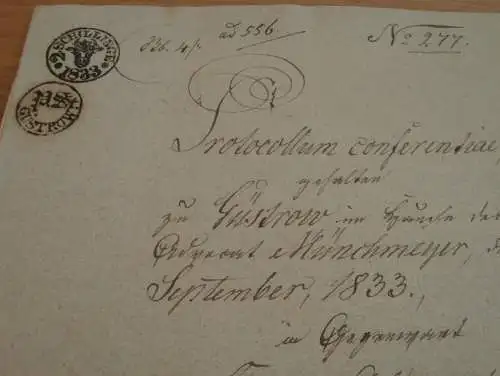 2 SCHILLINGE
1833
GUSTROW
ad 556.
No 277.
Protocollum conferentiae
gehalten
zu Güstrow im Hause des
Advocat Münchmeyer,
September, 1833.,
in Gegenwart